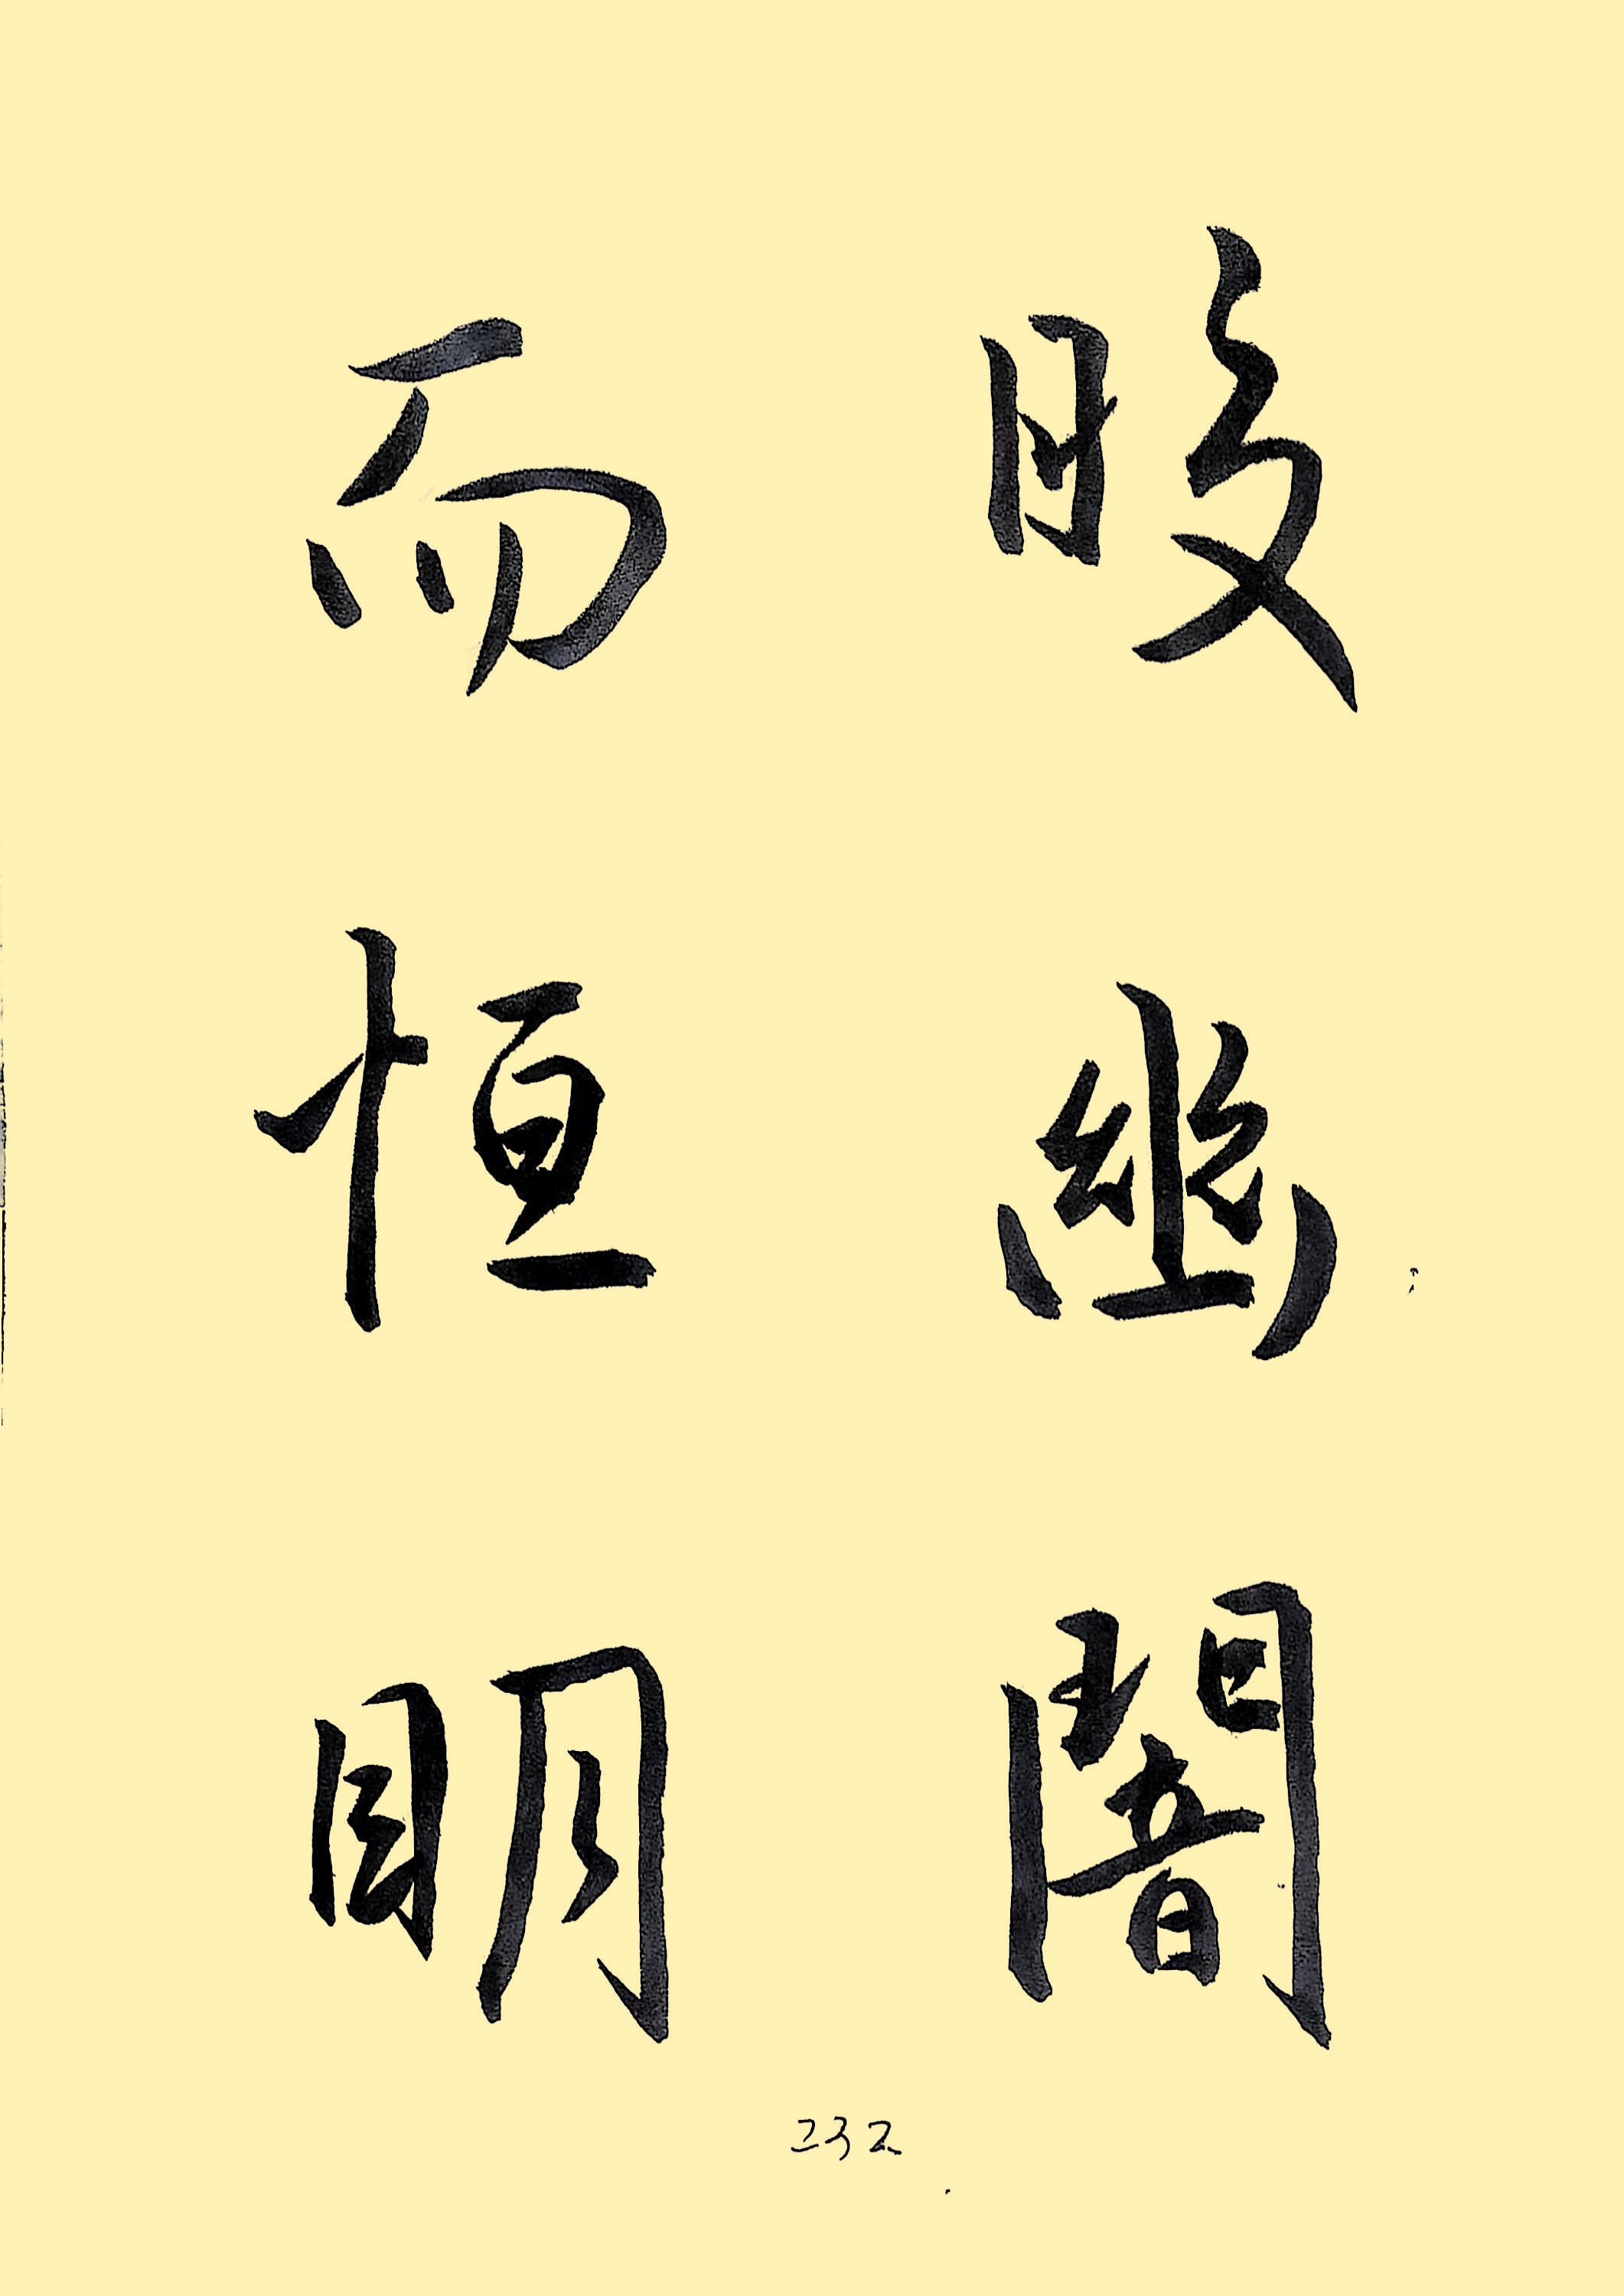 皎幽闇
而恒明
232